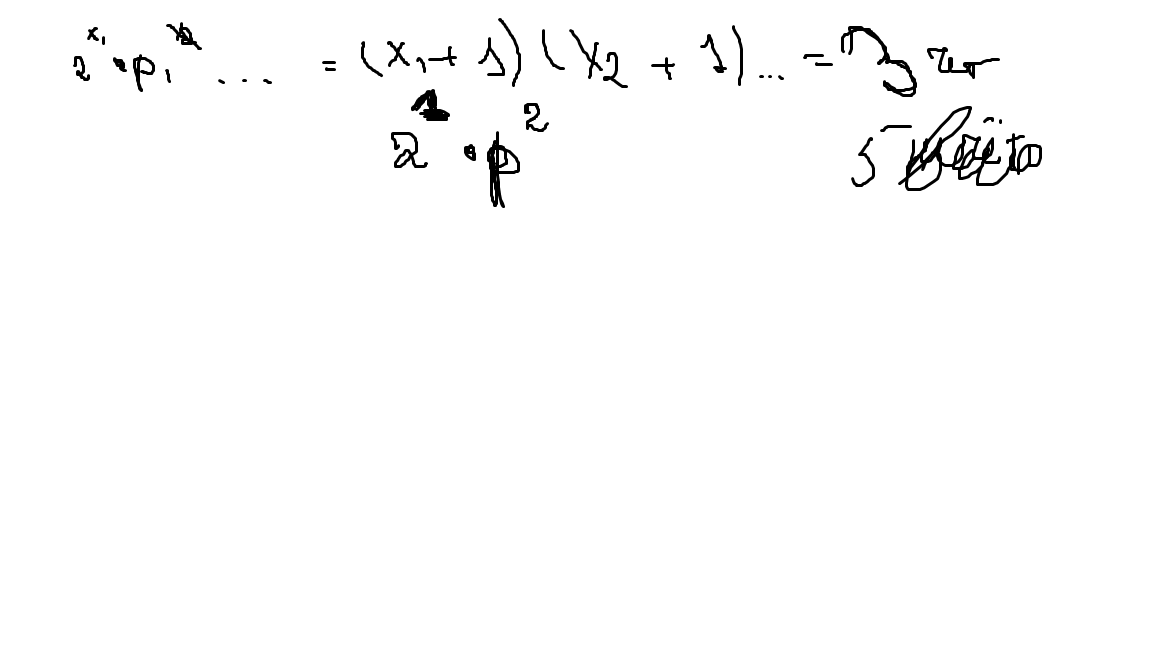 2^x₁ • p₁^x₂ ... = (x₁ + 1)(x₂ + 1)... = 3
2^1 • p^2 5